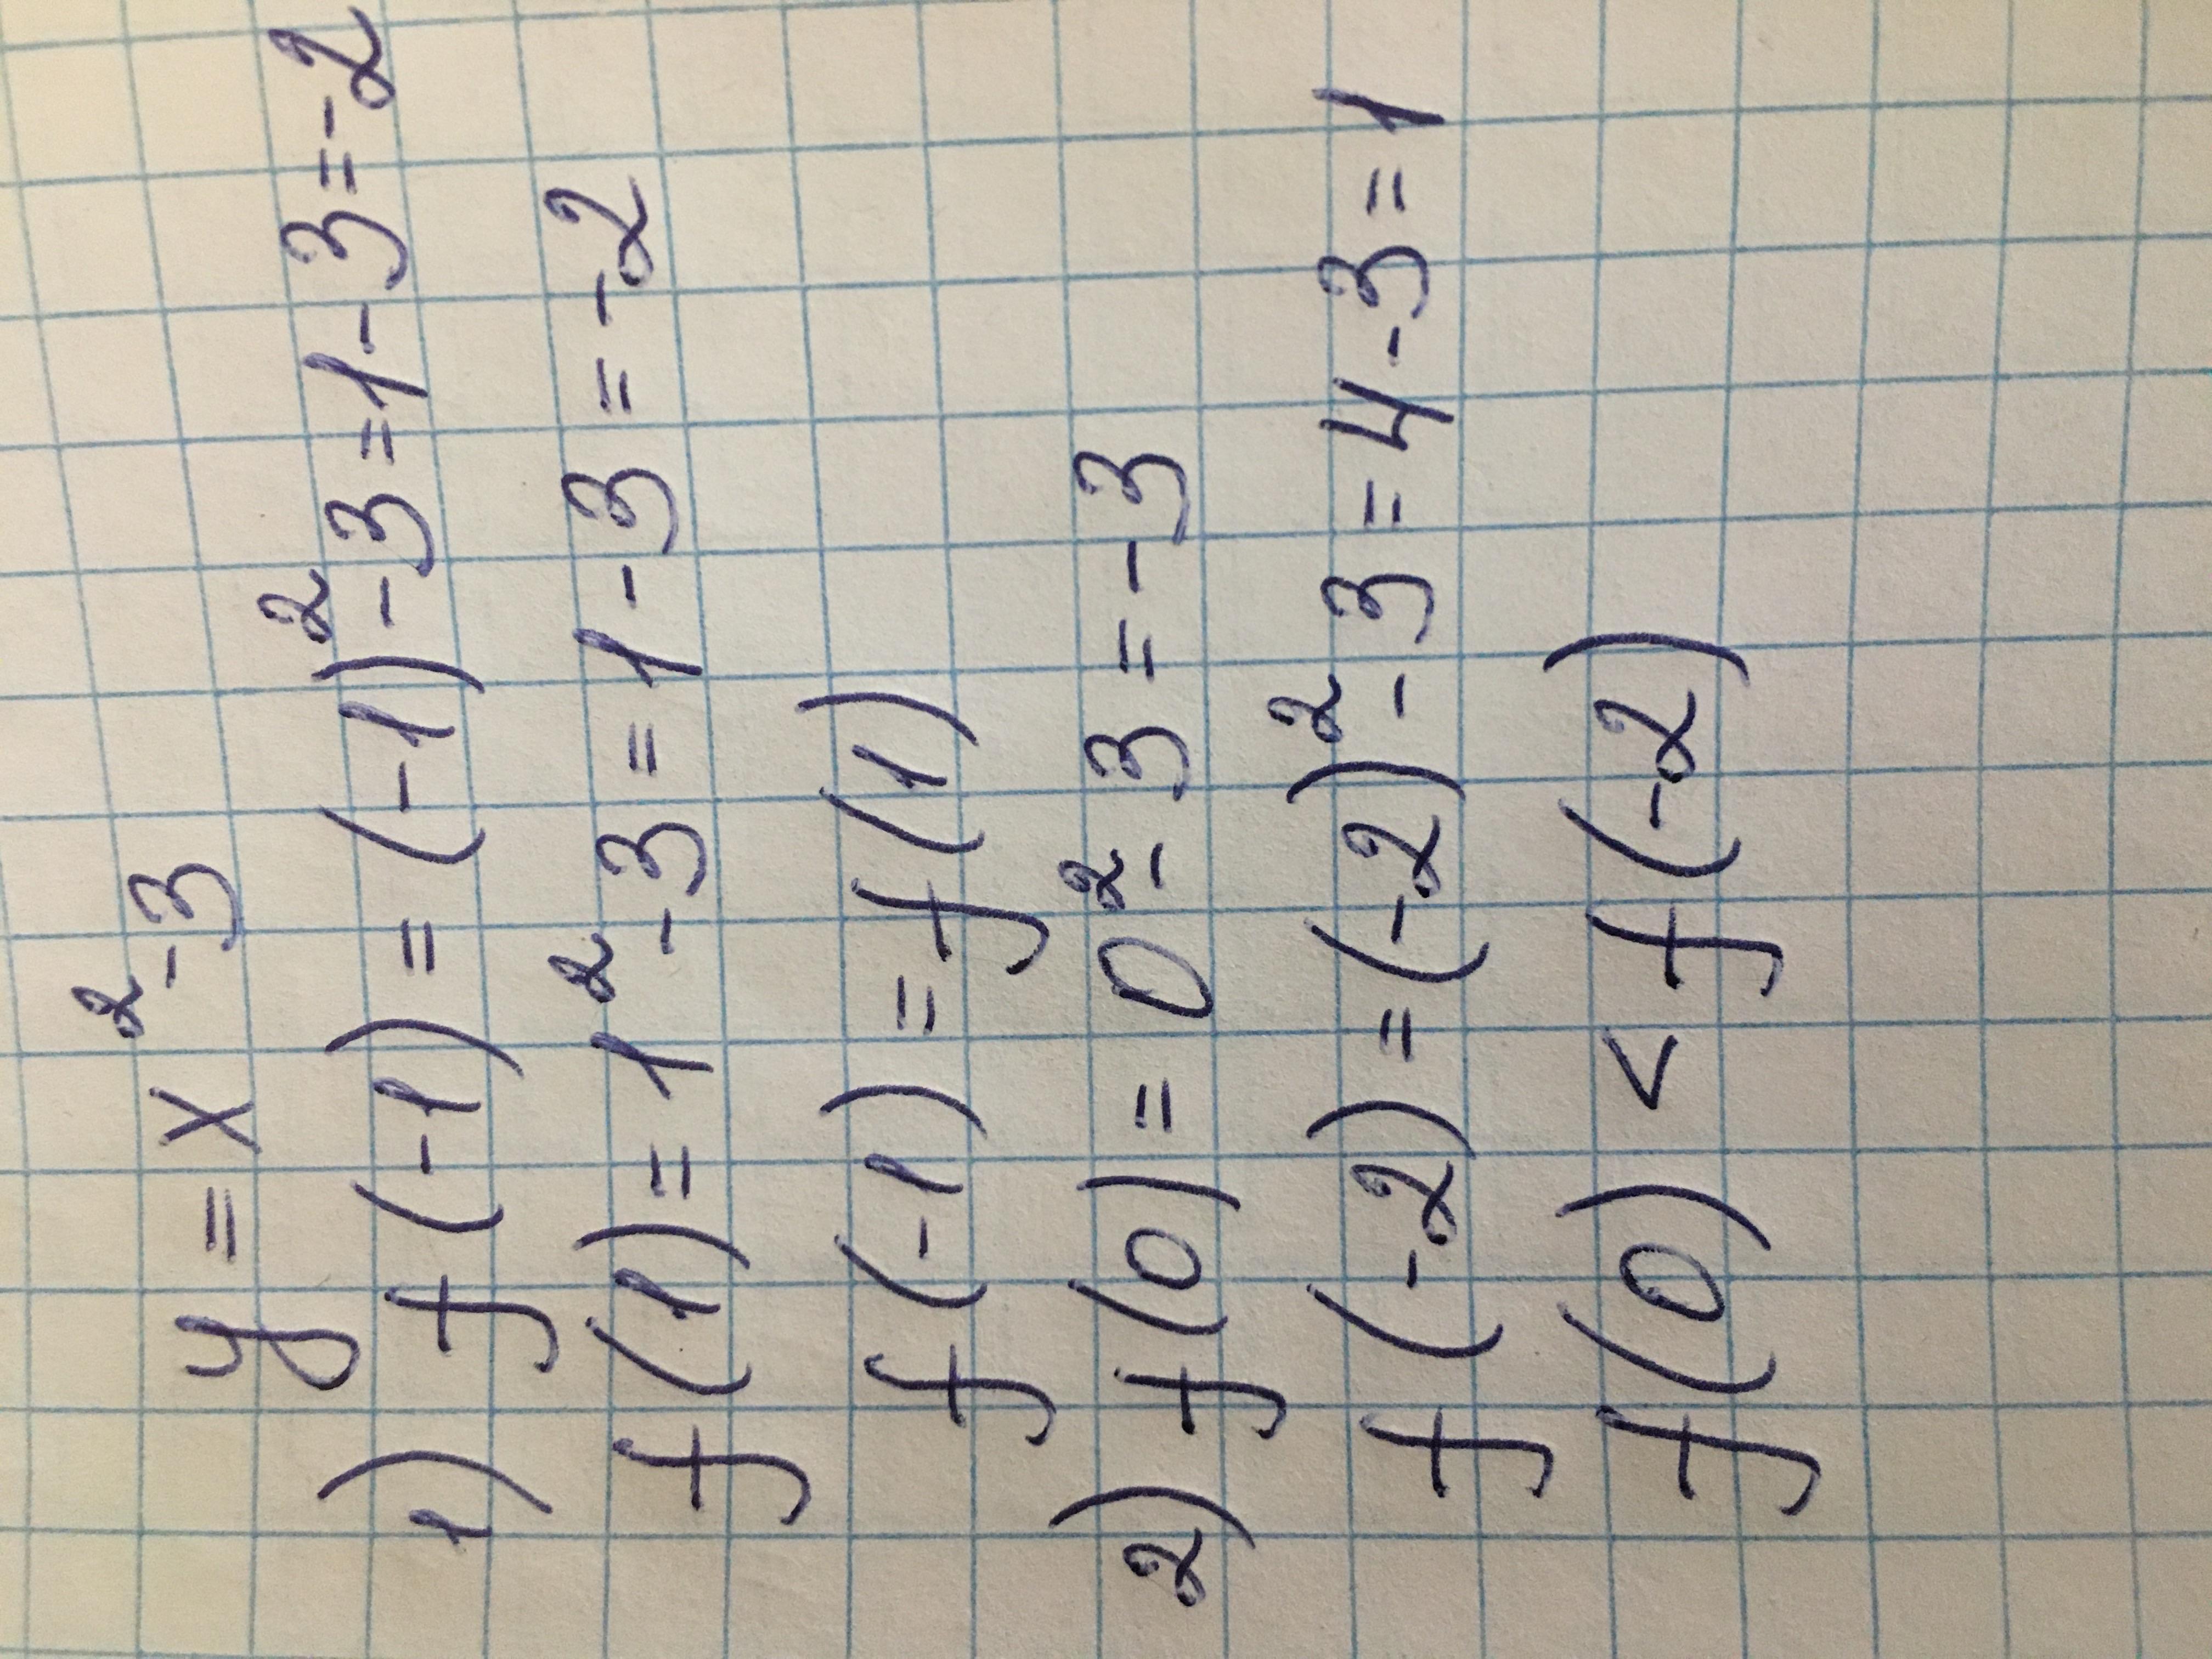 y = x² - 3
1) f(-1) = (-1)² - 3 = 1 - 3 = -2
f(1) = 1² - 3 = 1 - 3 = -2
f(-1) = f(1)
2) f(0) = 0² - 3 = -3
f(-2) = (-2)² - 3 = 4 - 3 = 1
f(0) < f(-2)